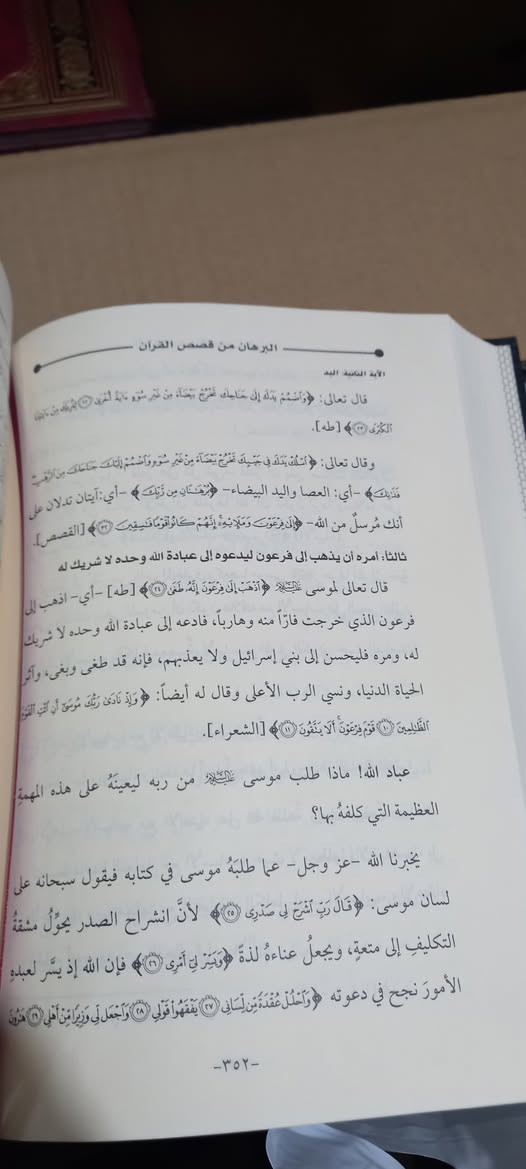 البرهان من قصص القرآن
الآية الثانية: اليد
قال تعالى: ﴿وَاضْمُمْ يَدَكَ إِلَى جَنَاحِكَ تَخْرُجْ بَيْضَاءَ مِنْ غَيْرِ سُوءٍ آيَةً أُخْرَى ﴿٢٢﴾ لِنُرِيَكَ مِنْ آيَاتِنَا
الْكُبْرَى ﴿٢٣﴾﴾ [طه].
وقال تعالى: ﴿اسْلُكْ يَدَكَ فِي جَيْبِكَ تَخْرُجْ بَيْضَاءَ مِنْ غَيْرِ سُوءٍ وَاضْمُمْ إِلَيْكَ جَنَاحَكَ مِنَ الرَّهْبِ
فَذَانِكَ﴾ -أي: العصا واليد البيضاء- ﴿بُرْهَانَانِ مِنْ رَبِّكَ﴾ -أي: آيتان تدلان على
أنك مُرسلٌ من الله- ﴿إِلَى فِرْعَوْنَ وَمَلَئِهِ إِنَّهُمْ كَانُوا قَوْمًا فَاسِقِينَ ﴿٣٢﴾﴾ [القصص].
ثالثا: أمره أن يذهب إلى فرعون ليدعوه إلى عبادة الله وحده لا شريك له
قال تعالى لموسى عليه السلام ﴿اذْهَبْ إِلَى فِرْعَوْنَ إِنَّهُ طَغَى ﴿٢٤﴾﴾ [طه] -أي- اذهب إلى
فرعون الذي خرجت فارّاً منه وهارباً، فادعه إلى عبادة الله وحده لا شريك
له، ومره فليحسن إلى بني إسرائيل ولا يعذبهم، فإنه قد طغى وبغى، وآثر
الحياة الدنيا، ونسي الرب الأعلى وقال له أيضاً: ﴿وَإِذْ نَادَى رَبُّكَ مُوسَى أَنِ ائْتِ الْقَوْمَ
الظَّالِمِينَ ﴿١٠﴾ قَوْمَ فِرْعَوْنَ أَلَا يَتَّقُونَ ﴿١١﴾﴾ [الشعراء].
عباد الله! ماذا طلب موسى عليه السلام من ربه ليعينَهُ على هذه المهمةِ
العظيمة التي كلفهُ بها؟
يخبرنا الله -عز وجل- عما طلبَهُ موسى في كتابه فيقول سبحانه على
لسان موسى: ﴿قَالَ رَبِّ اشْرَحْ لِي صَدْرِي ﴿٢٥﴾﴾ لأنَّ انشراح الصدر يحوِّلُ مشقةَ
التكليفِ إلى متعةٍ، ويجعلُ عناءهُ لذةً ﴿وَيَسِّرْ لِي أَمْرِي ﴿٢٦﴾﴾ فإن الله إذ يسَّر لعبدهِ
الأمورَ نجح في دعوته ﴿وَاحْلُلْ عُقْدَةً مِنْ لِسَانِي ﴿٢٧﴾ يَفْقَهُوا قَوْلِي ﴿٢٨﴾ وَاجْعَلْ لِي وَزِيرًا مِنْ أَهْلِي ﴿٢٩﴾ هَارُونَ
-٣٥٢-